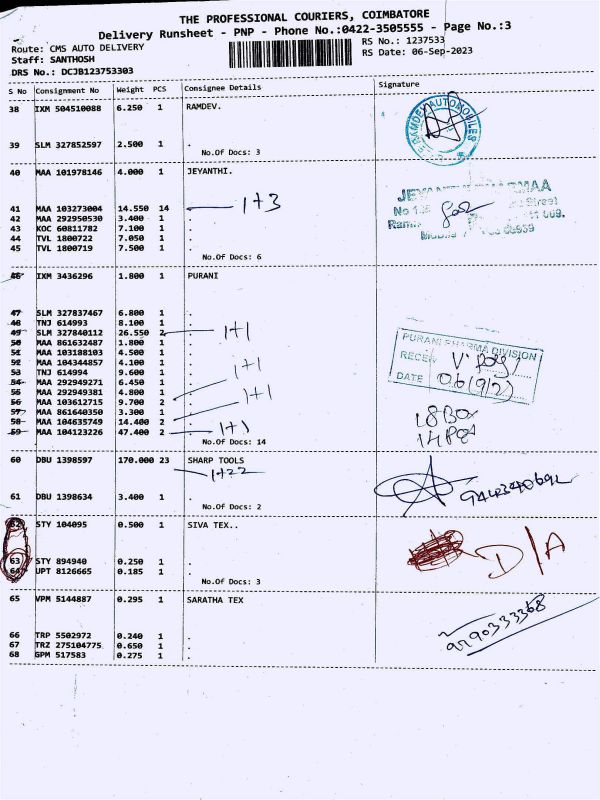 THE PROFESSIONAL COURIERS, COIMBATORE
Delivery Runsheet - PNP - Phone No.:0422-3505555 - Page No.:3
Route: CMS AUTO DELIVERY RS No.: 1237533
Staff: SANTHOSH RS Date: 06-Sep-2023
DRS No.: DCJB123753303
S No Consignment No Weight PCS Consignee Details Signature
38 IXM 504510088 6.250 1 RAMDEV.
RAMDEV AUTOMOBILES
39 SLM 327852597 2.500 1 .
No.Of Docs: 3
40 MAA 101978146 4.000 1 JEYANTHI.
41 MAA 103273004 14.550 14 . 1+3
42 MAA 292950530 3.400 1 .
43 KOC 60811782 7.100 1 .
44 TVL 1800722 7.050 1 .
45 TVL 1800719 7.500 1 .
No.Of Docs: 6
46 IXM 3436296 1.800 1 PURANI
47 SLM 327837467 6.800 1 .
48 TNJ 614993 8.100 1 .
49 SLM 327840112 26.550 2 . 1+1
50 MAA 861632487 1.800 1 .
51 MAA 103188103 4.500 1 .
52 MAA 104344857 4.100 1 .
53 TNJ 614994 9.600 1 . 1+1
54 MAA 292949271 6.450 1 .
55 MAA 292949381 4.800 1 .
56 MAA 103612715 9.700 2 . 1+1
57 MAA 861640350 3.300 1 .
58 MAA 104635749 14.400 2 .
59 MAA 104123226 47.400 2 . 1+1
No.Of Docs: 14
PURANI PHARMA DIVISION
DATE
18 Box
60 DBU 1398597 170.000 23 SHARP TOOLS
1+22
61 DBU 1398634 3.400 1 .
No.Of Docs: 2
62 STY 104095 0.500 1 SIVA TEX..
D/A
63 STY 894940 0.250 1 .
64 UPT 8126665 0.185 1 .
No.Of Docs: 3
65 VPM 5144887 0.295 1 SARATHA TEX
9790333368
66 TRP 5502972 0.240 1 .
67 TRZ 275104775 0.650 1 .
68 GPM 517583 0.275 1 .